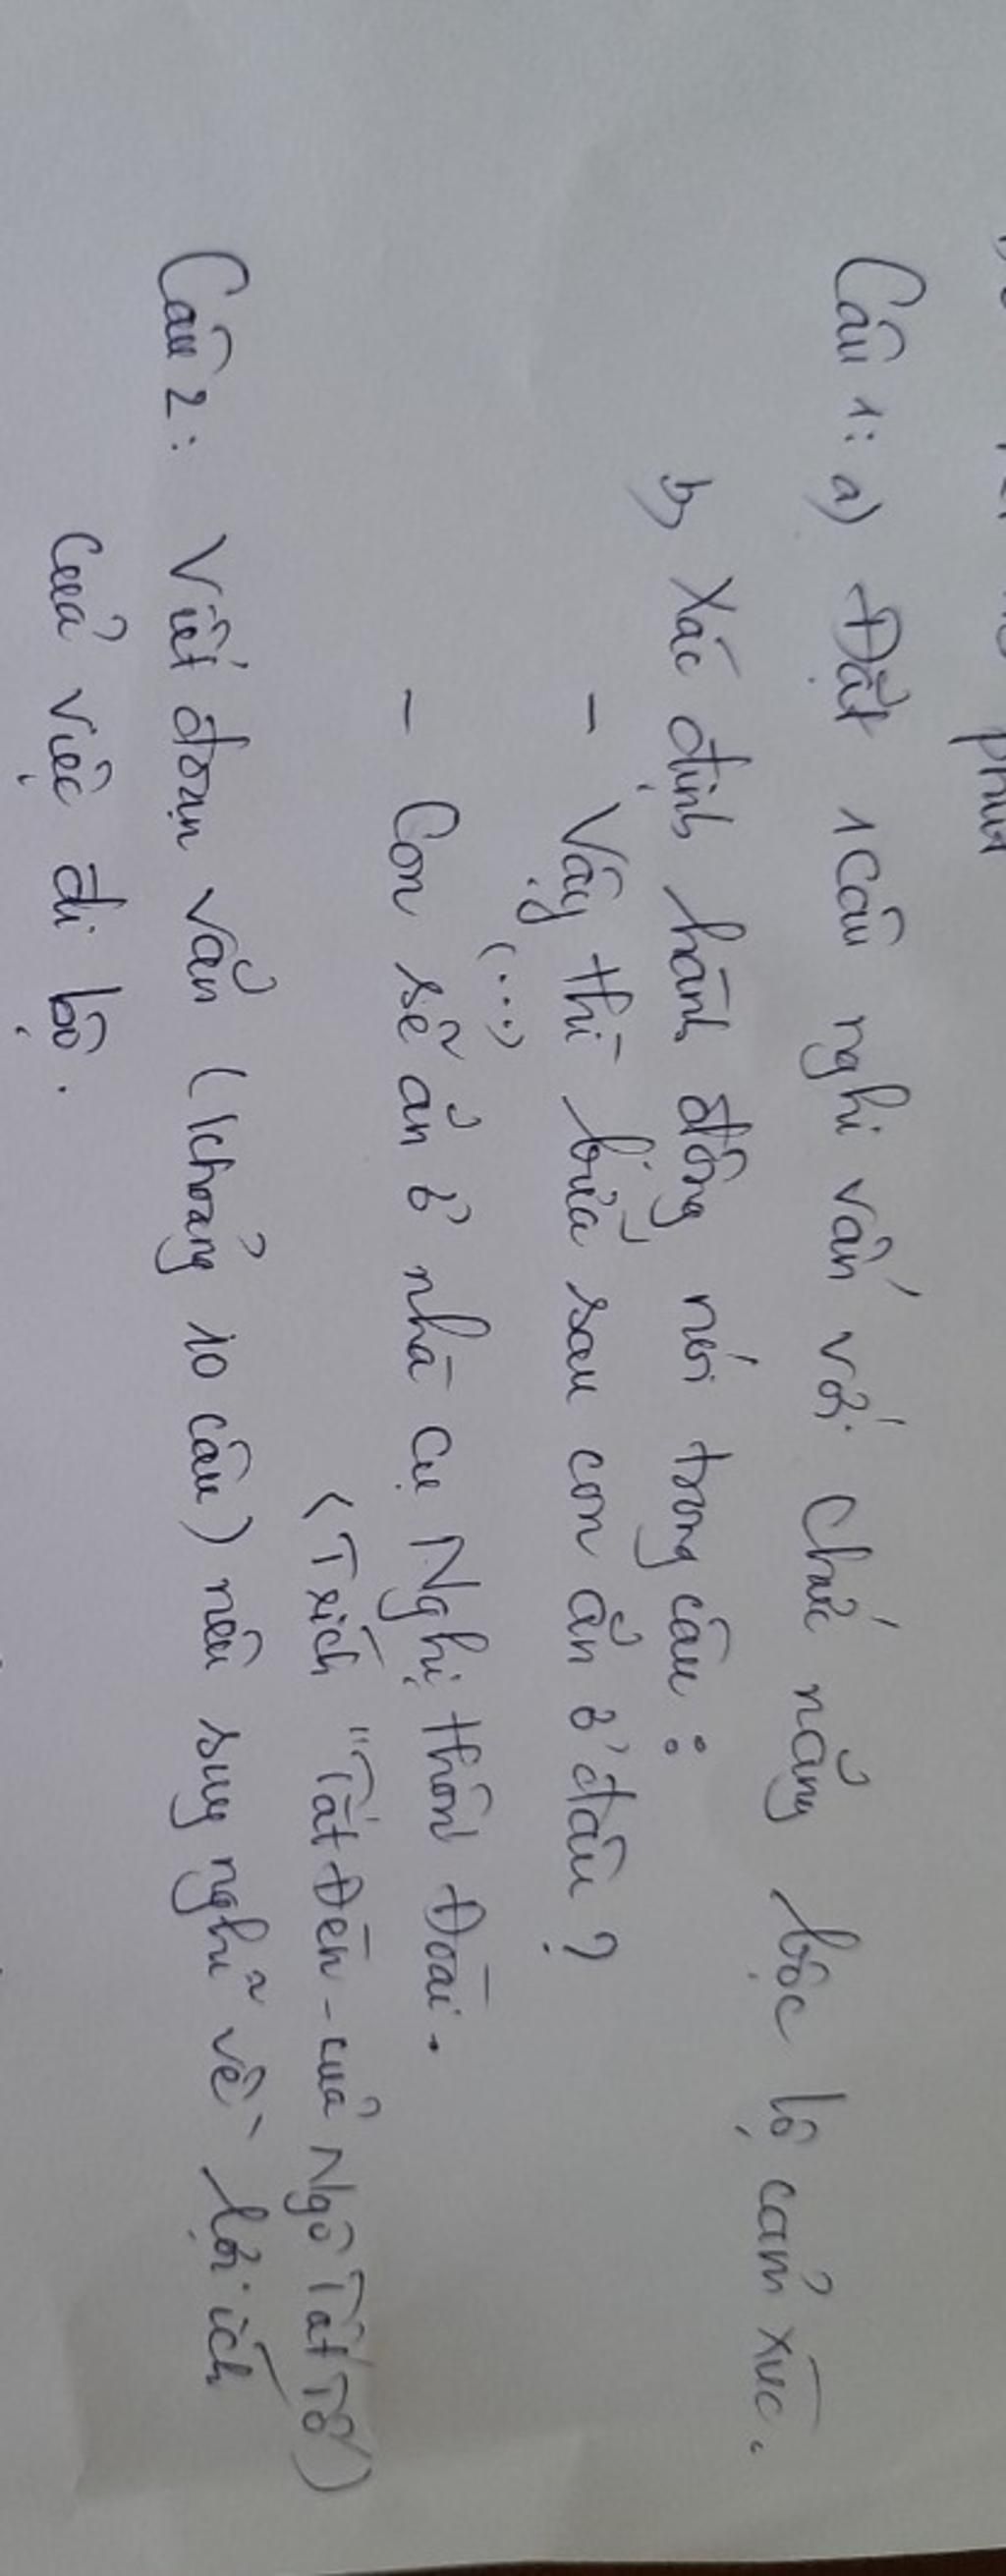 phút
Câu 1: a) Đặt 1 câu nghi vấn với chức năng bộc lộ cảm xúc.
b) Xác định hành động nói trong câu:
- Vậy thì bữa sau con ăn ở đâu?
(...)
- Con sẽ ăn ở nhà cụ Nghị thôn Đoài.
(Trích "Tắt Đèn - của Ngô Tất Tố)
Câu 2: Viết đoạn văn (khoảng 10 câu) nêu suy nghĩ về lợi ích
của việc đi bộ.